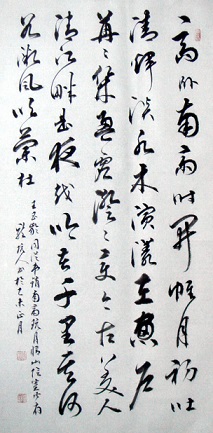 高臥南齋時開帷月初吐
清輝淡水木演漾在窗戶
苒苒幾盈虛澄澄變今古美人
清江畔是夜越吟苦千里其
微風吹蘭杜
王昌齡同從弟銷南齋玩月憶山陰崔少府
書於未正月